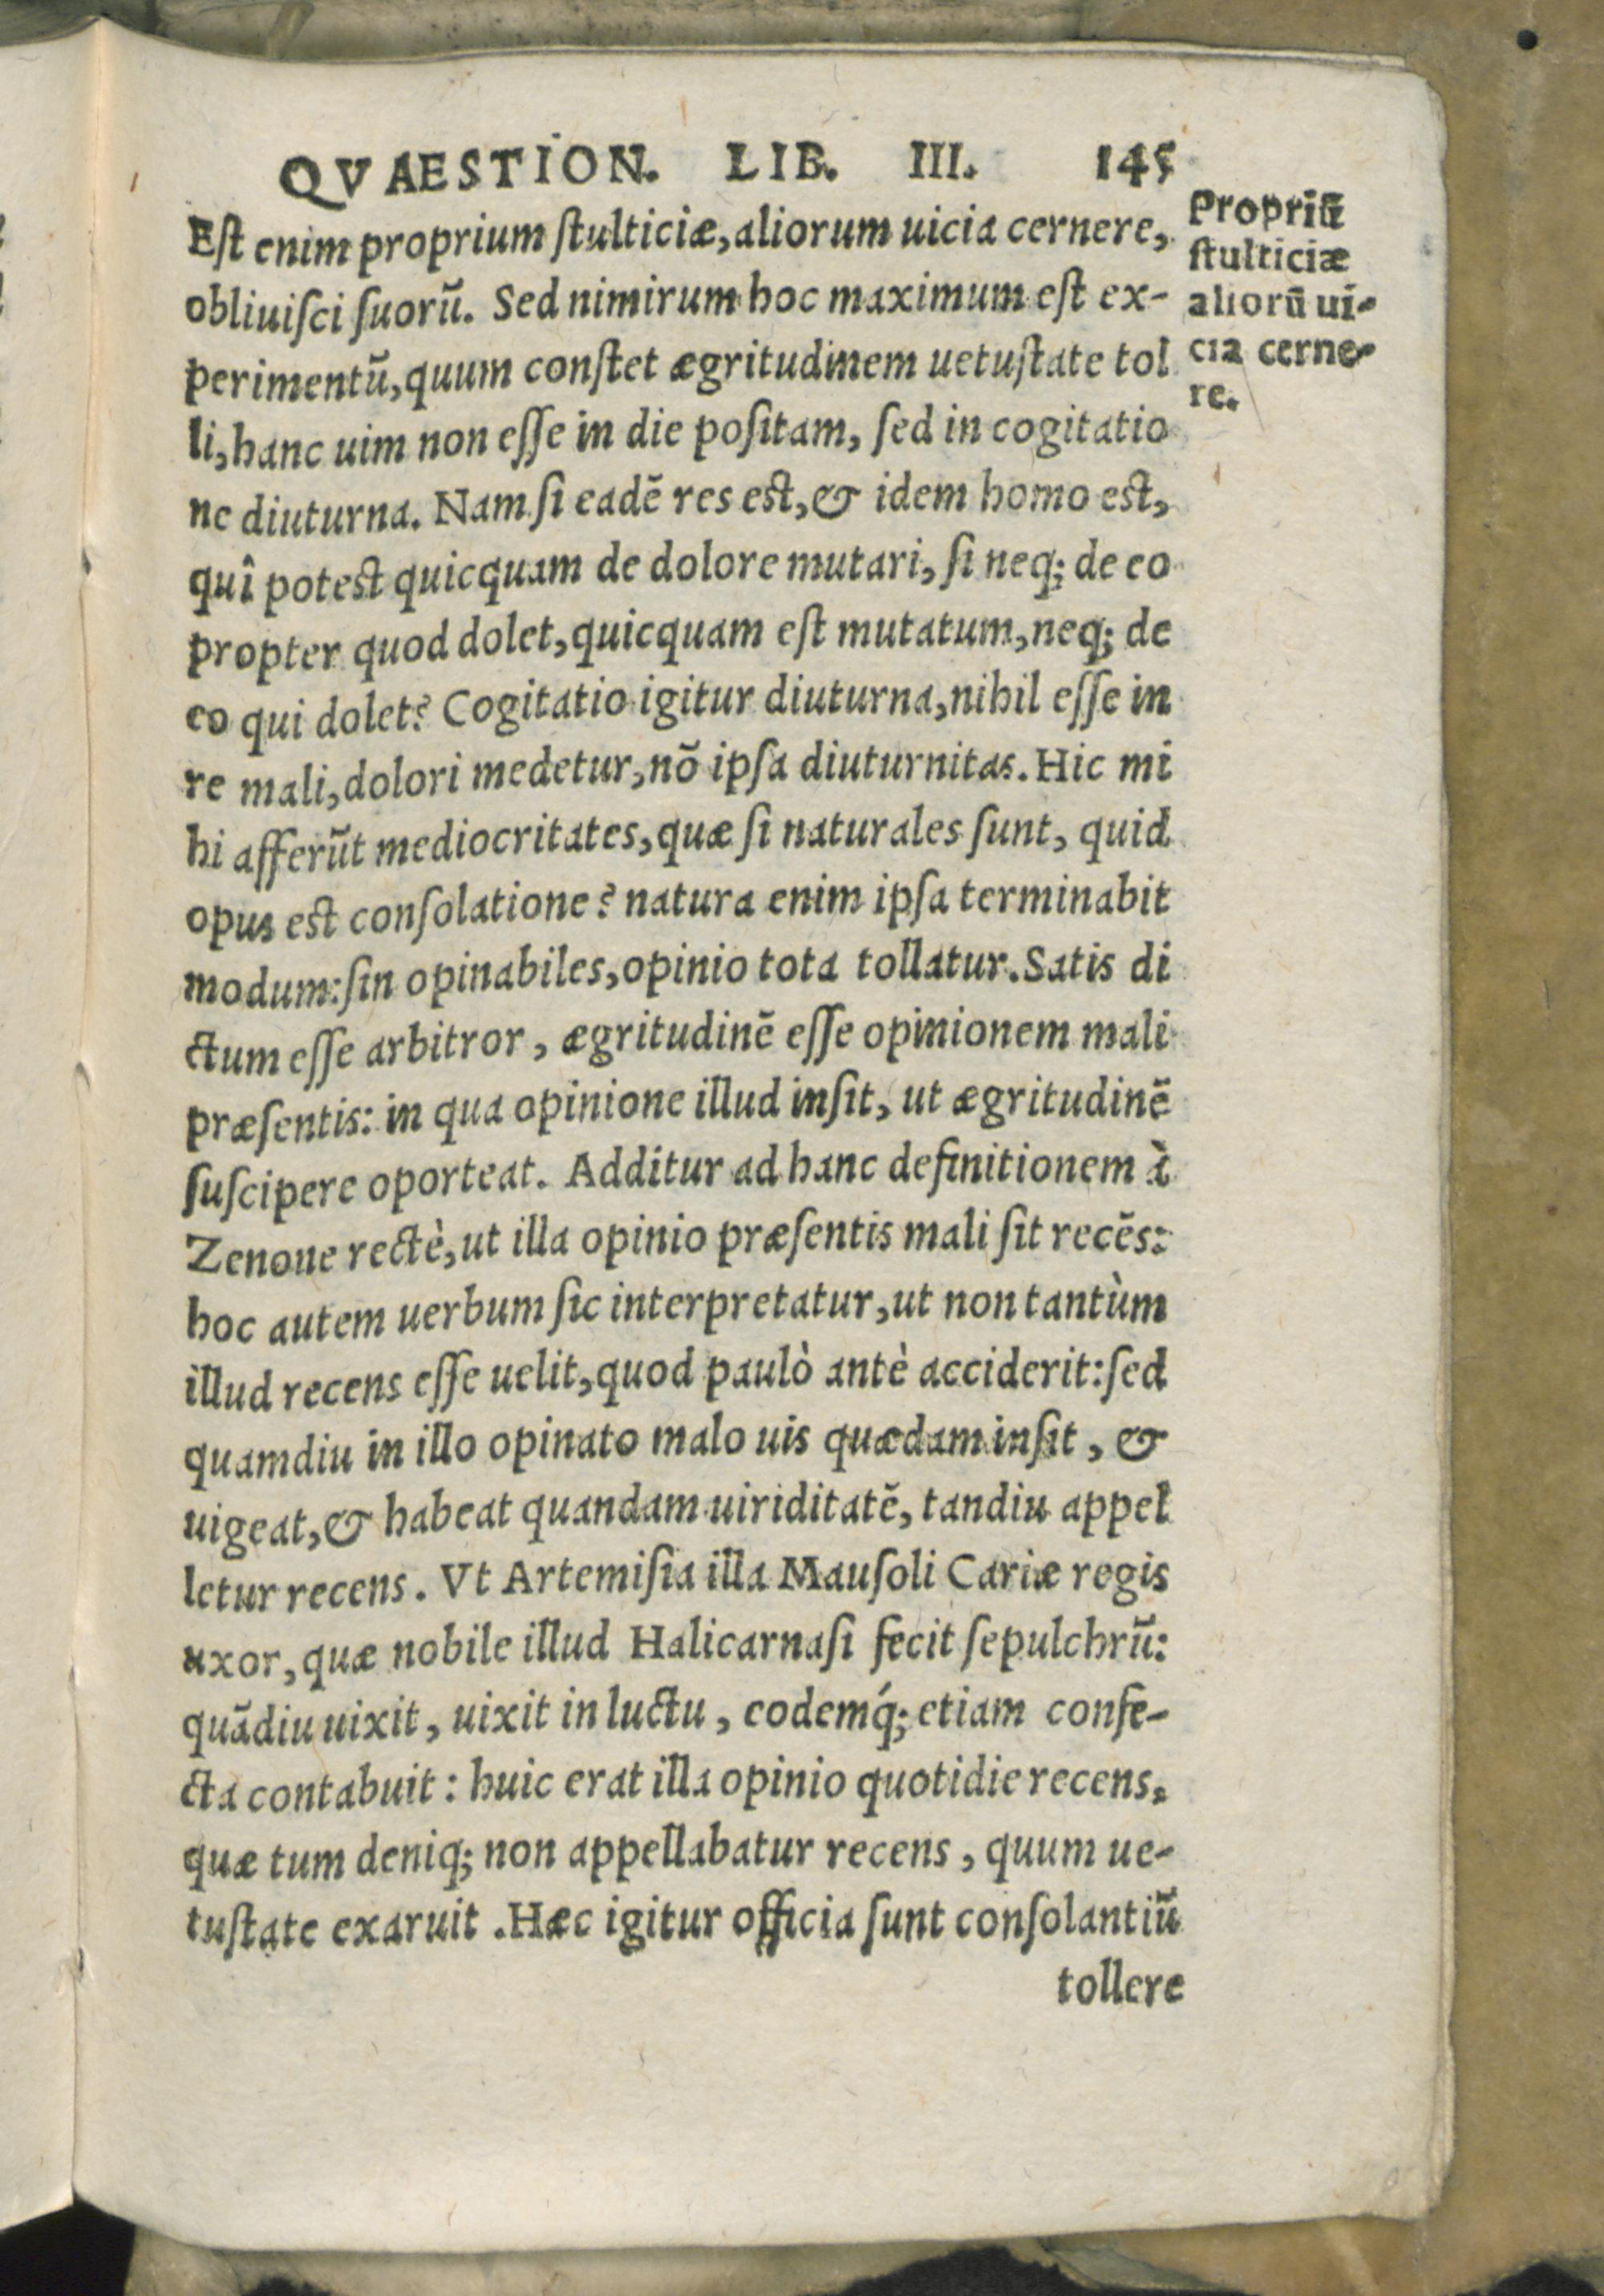 QVAESTION. LIB. III. 145
Est enim proprium ſtulticiæ, aliorum uicia cernere,
obliuiſci ſuorũ. Sed nimirum hoc maximum eſt ex-
perimentũ, quum conſtet ægritudinem uetuſtate tol
li, hanc uim non eſſe in die poſitam, ſed in cogitatio
ne diuturna. Nam ſi eadẽ res est, & idem homo est,
quî potest quicquam de dolore mutari, ſi neq; de eo
propter quod dolet, quicquam eſt mutatum, neq; de
eo qui dolet? Cogitatio igitur diuturna, nihil eſſe in
re mali, dolori medetur, nõ ipſa diuturnitas. Hic mi
hi afferũt mediocritates, quæ ſi naturales ſunt, quid
opus est conſolatione? natura enim ipſa terminabit
modum: ſin opinabiles, opinio tota tollatur. Satis di
ctum eſſe arbitror, ægritudinẽ eſſe opinionem mali
præſentis: in qua opinione illud inſit, ut ægritudinẽ
ſuſcipere oporteat. Additur ad hanc definitionem à
Zenone rectè, ut illa opinio præſentis mali ſit recẽs:
hoc autem uerbum ſic interpretatur, ut non tantùm
illud recens eſſe uelit, quod paulò antè acciderit: ſed
quamdiu in illo opinato malo uis quædam inſit, &
uigeat, & habeat quandam uiriditatẽ, tandiu appel
letur recens. Vt Artemiſia illa Mauſoli Cariæ regis
uxor, quæ nobile illud Halicarnaſi fecit ſepulchrũ:
quãdiu uixit, uixit in luctu, eodemq́; etiam confe-
cta contabuit: huic erat illa opinio quotidie recens,
quæ tum deniq; non appellabatur recens, quum ue-
tuſtate exaruit. Hæc igitur officia ſunt conſolantiũ
tollere
Propriũ
ſtulticiæ
aliorũ ui-
cia cerne-
re.